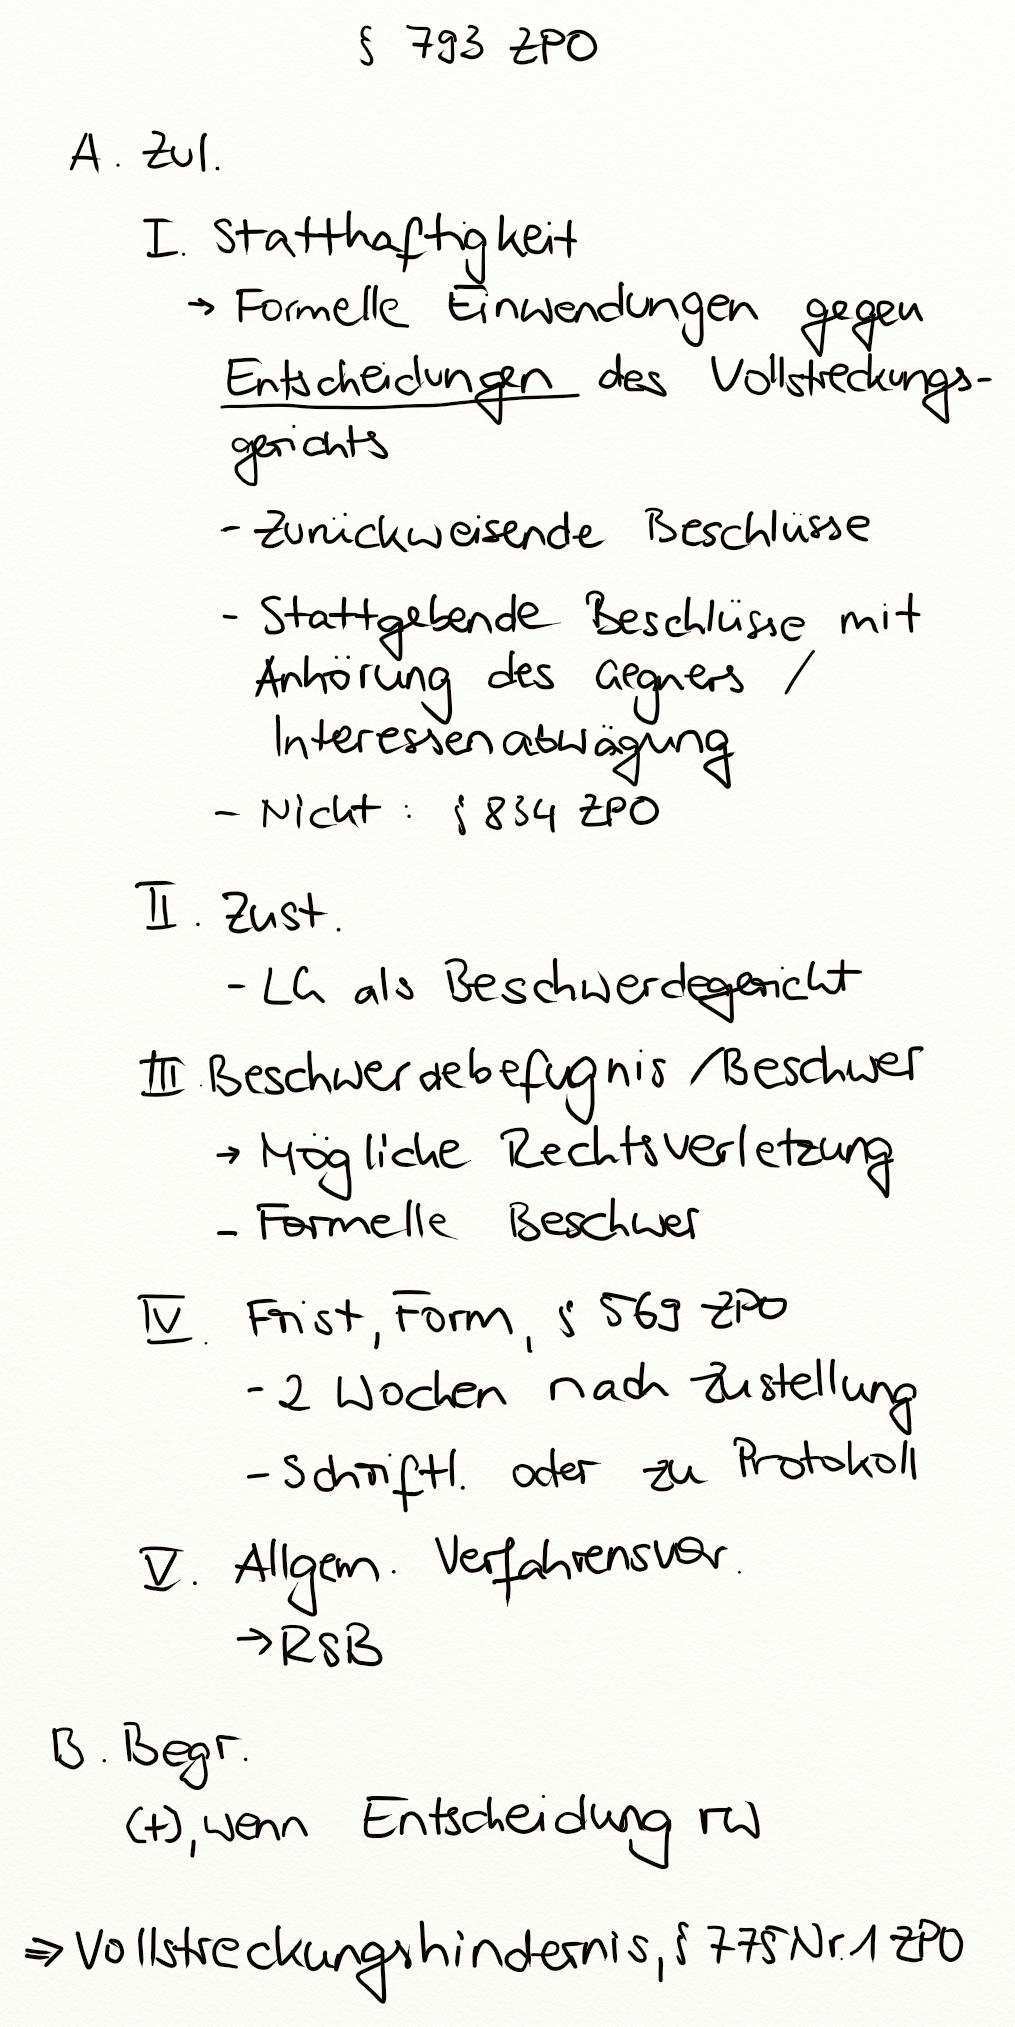 § 793 ZPO
A. Zul.
I. Statthaftigkeit
→ Formelle Einwendungen gegen
Entscheidungen des Vollstreckungs-
gerichts
- Zurückweisende Beschlüsse
- Stattgebende Beschlüsse mit
Anhörung des Gegners /
Interessenabwägung
- Nicht: § 834 ZPO
II. Zust.
- LG als Beschwerdegericht
III. Beschwerdebefugnis / Beschwer
→ Mögliche Rechtsverletzung
- Formelle Beschwer
IV. Frist, Form, § 569 ZPO
- 2 Wochen nach Zustellung
- Schriftl. oder zu Protokoll
V. Allgem. Verfahrensvor.
→ RSB
B. Begr.
(+), wenn Entscheidung rw
⇒ Vollstreckungshindernis, § 775 Nr. 1 ZPO